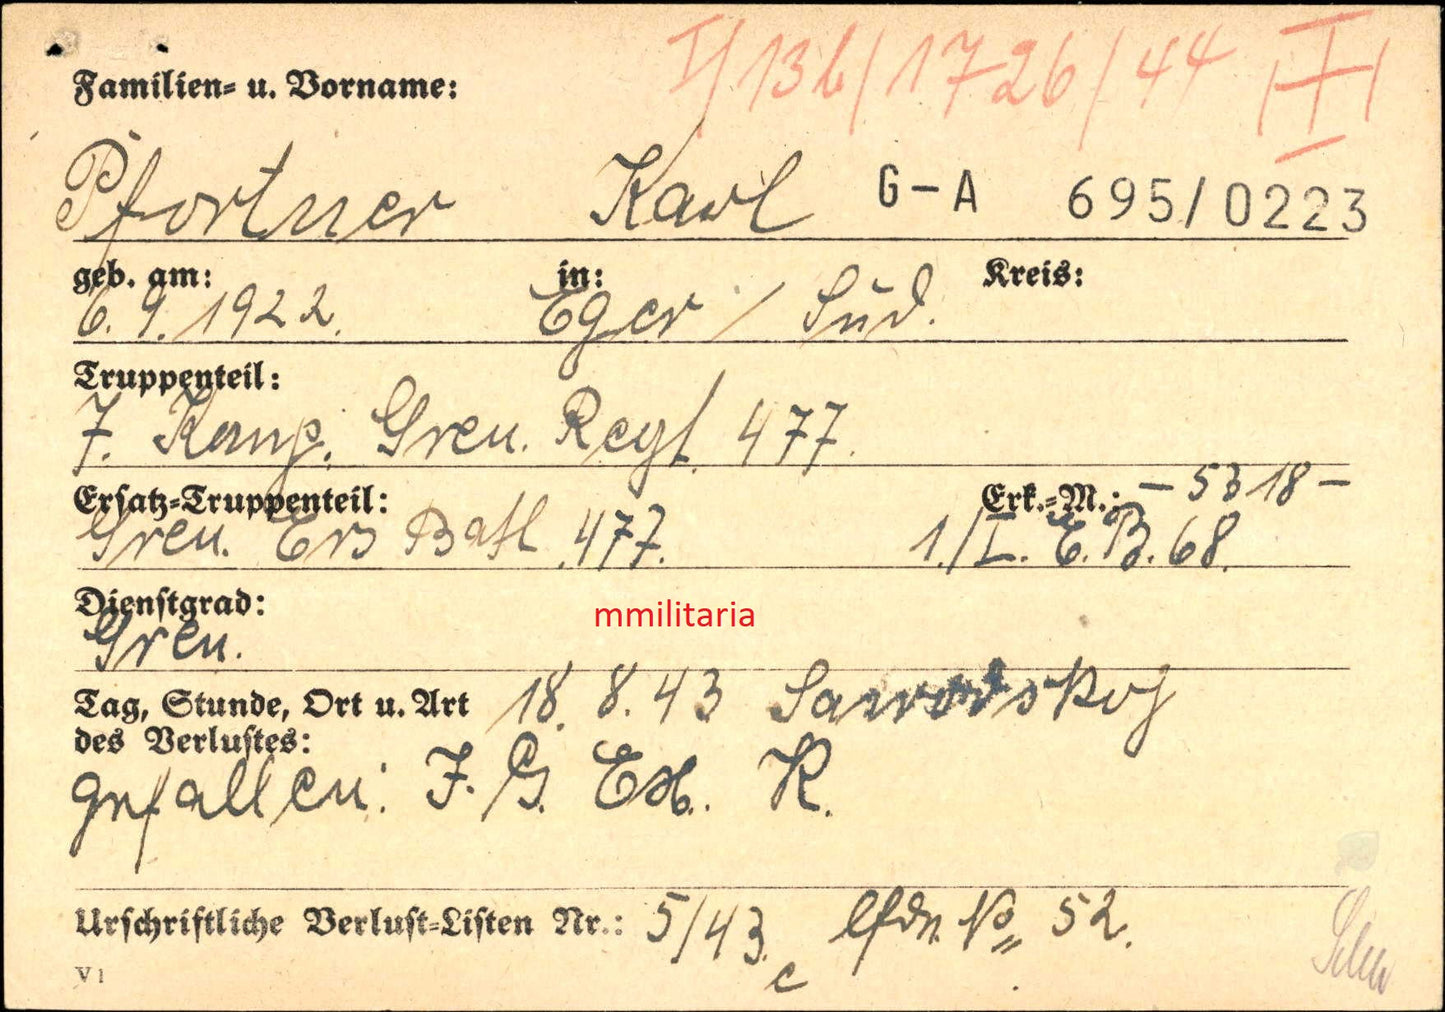 I/13b/1726/44
Familien- u. Vorname:
Pfortner Karl G-A 695/0223
geb. am: in: Kreis:
6. 9. 1922. Eger / Süd.
Truppenteil:
7. Komp. Gren. Regt. 477.
Ersatz-Truppenteil: Erk.-M.: – 5318 –
Gren. Ers Batl. 477. 1./I. E. B. 68.
Dienstgrad: mmilitaria
Gren.
Tag, Stunde, Ort u. Art 18. 8. 43
des Verlustes:
gefallen: J. G. K.
Urschriftliche Verlust-Listen Nr.: 5/43c lfde No 52.
V 1